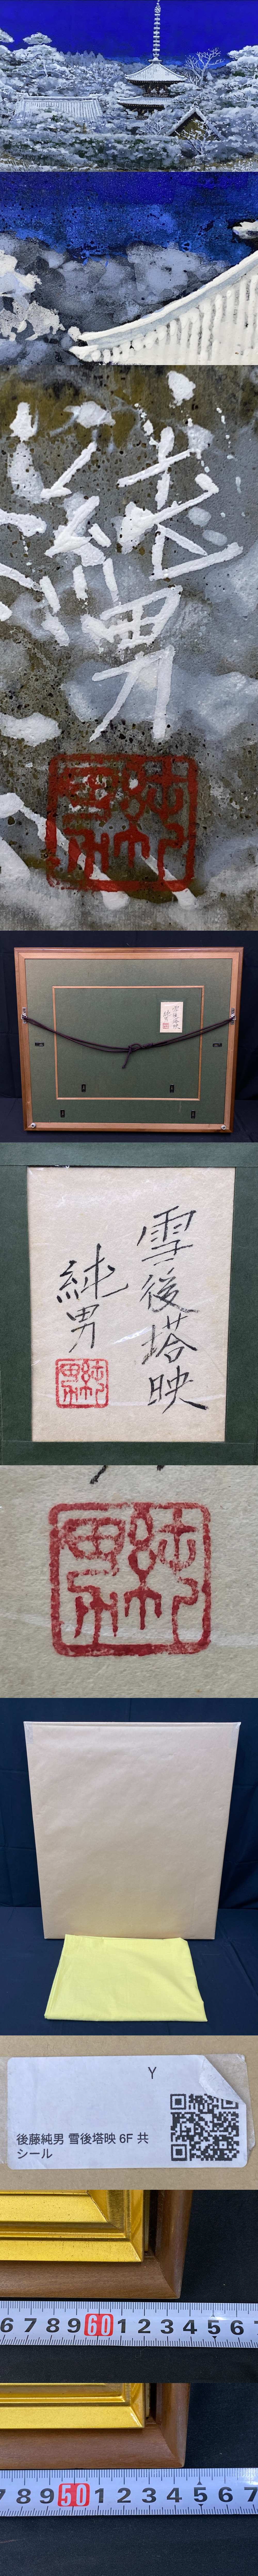 純男
雪後塔映
純男
Y
後藤純男 雪後塔映 6F 共
シール
6 7 8 9 60 1 2 3 4 5 6 7
7 8 9 50 1 2 3 4 5 6 7